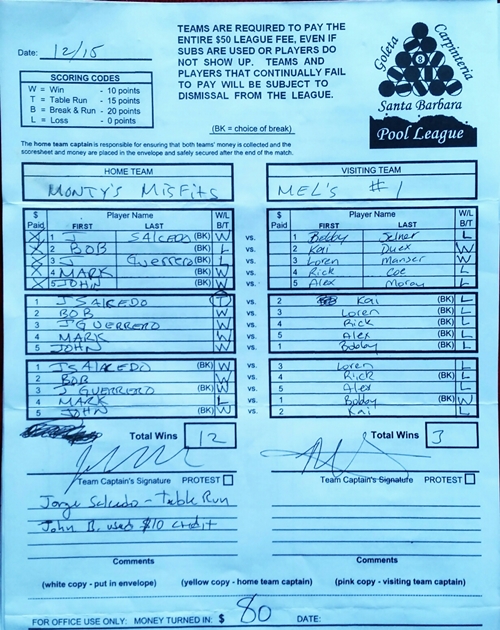 Date: 12/15
TEAMS ARE REQUIRED TO PAY THE
ENTIRE $50 LEAGUE FEE, EVEN IF
SUBS ARE USED OR PLAYERS DO
NOT SHOW UP. TEAMS AND
PLAYERS THAT CONTINUALLY FAIL
TO PAY WILL BE SUBJECT TO
DISMISSAL FROM THE LEAGUE.
Goleta Carpinteria
Santa Barbara
Pool League
SCORING CODES
W = Win - 10 points
T = Table Run - 15 points
B = Break & Run - 20 points
L = Loss - 0 points
(BK = choice of break)
The home team captain is responsible for ensuring that both teams' money is collected and the
scoresheet and money are placed in the envelope and safely secured after the end of the match.
HOME TEAM VISITING TEAM
MONTY'S MISFITS MEL'S #1
$ Paid Player Name FIRST LAST W/L B/T Player Name FIRST LAST W/L B/T $ Paid
X 1 J SALCEDO (BK) W vs. 1 Bobby L
X 2 BOB (BK) L vs. 2 Kai Duex W
X 3 J Guerrero (BK) L vs. 3 Loren Manser W
X 4 MARK (BK) W vs. 4 Rick Coe L
X 5 JOHN (BK) W vs. 5 Alex L
1 J SALCEDO T vs. 2 Kai (BK) L
2 BOB W vs. 3 Loren (BK) L
3 J GUERRERO W vs. 4 Rick (BK) L
4 MARK W vs. 5 Alex (BK) L
5 JOHN W vs. 1 Bobby (BK) L
1 J SALCEDO (BK) W vs. 3 Loren L
2 BOB W vs. 4 Rick (BK) L
3 J GUERRERO (BK) W vs. 5 Alex L
4 MARK L vs. 1 Bobby (BK) W
5 JOHN (BK) W vs. 2 Kai L
Total Wins 12 Total Wins 3
Team Captain's Signature PROTEST Team Captain's Signature PROTEST
Jorge Salcedo - Table Run
John B. used $10 credit
Comments Comments
(white copy - put in envelope) (yellow copy - home team captain) (pink copy - visiting team captain)
FOR OFFICE USE ONLY: MONEY TURNED IN: $ 80 DATE: